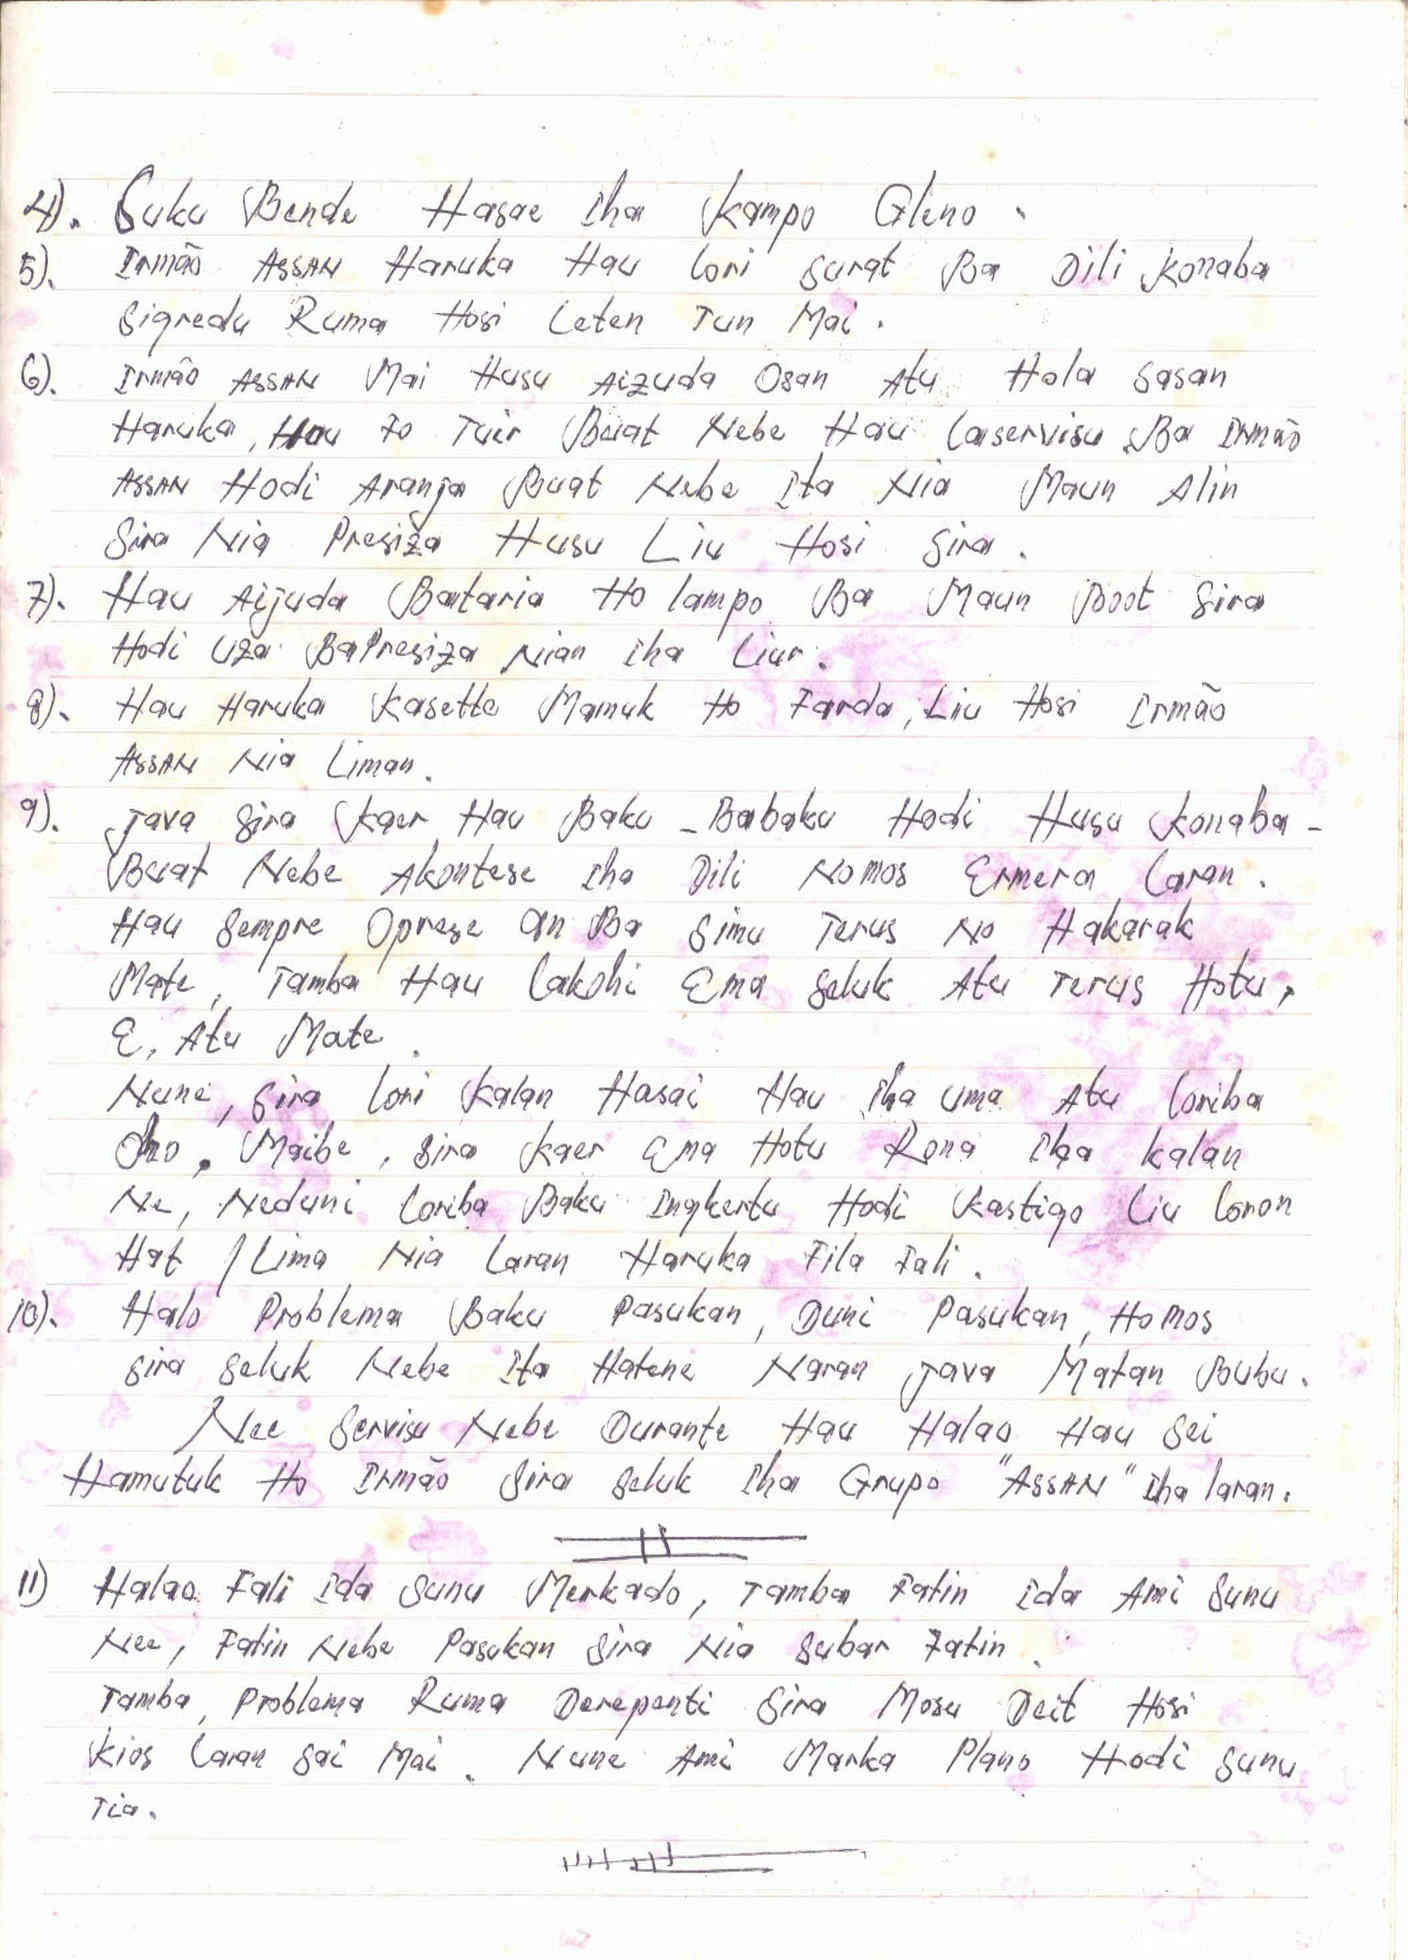 4). Suku Bende Hasae Iha Kampo Gleno.
5). Irmão Assan Haruka Hau lori surat Ba Dili Konaba
Sigredu Ruma Hosi Leten Tun Mai.
6). Irmão Assan Mai Husu Aizuda Osan Atu Hola Sasan
Haruka, Hau Fo Tuir Buat Nebe Hau laservisu Ba Irmão
Assan Hodi Aranja Buat Nebe Ita Nia Maun Alin
Sira Nia Presiza Husu Liu Hosi Sira.
7). Hau Aijuda Bataria Ho lampo Ba Maun Boot Sira
Hodi Uza BaPresiza Nian Iha Liur.
8). Hau Haruka Kasette Mamuk Ho Farda, Liu Hosi Irmão
Assan Nia Liman.
9). Java Sira Kaer Hau Baku - Babaku Hodi Husu Konaba -
Buat Nebe Akontese Iha Dili Nomos Ermera laran.
Hau Sempre Oprese an Ba Simu Terus No Hakarak
Mate, Tamba Hau lakohi Ema Seluk Atu Terus Hotu,
E, Atu Mate.
Nune, Sira lori Kalan Hasai Hau Iha uma Atu loriba
Oho. Maibe, Sira Kaer Ema Hotu Rona Iha kalan
Ne, Neduni loriba Baku Ingkertu Hodi Kastigo Liu loron
Hat / Lima Nia laran Haruka Fila Fali.
10). Halo Problema Baku Pasukan, Duni Pasukan, Homos
Sira Seluk Nebe Ita Hatene Naran Java Matan Bubu.
Nee Servisu Nebe Durante Hau Halao Hau Sei
Hamutuk Ho Irmão Sira Seluk Iha Grupo "Assan" Iha laran.
11) Halao Fali Ida Sunu Merkado, Tamba Fatin Ida Ami Sunu
Nee, Fatin Nebe Pasukan Sira Nia Subar Fatin.
Tamba, Problema Ruma Derepenti Sira Mosu Deit Hosi
Kios laran Sai Mai. Nune Ami Marka Plano Hodi Sunu
Tia.